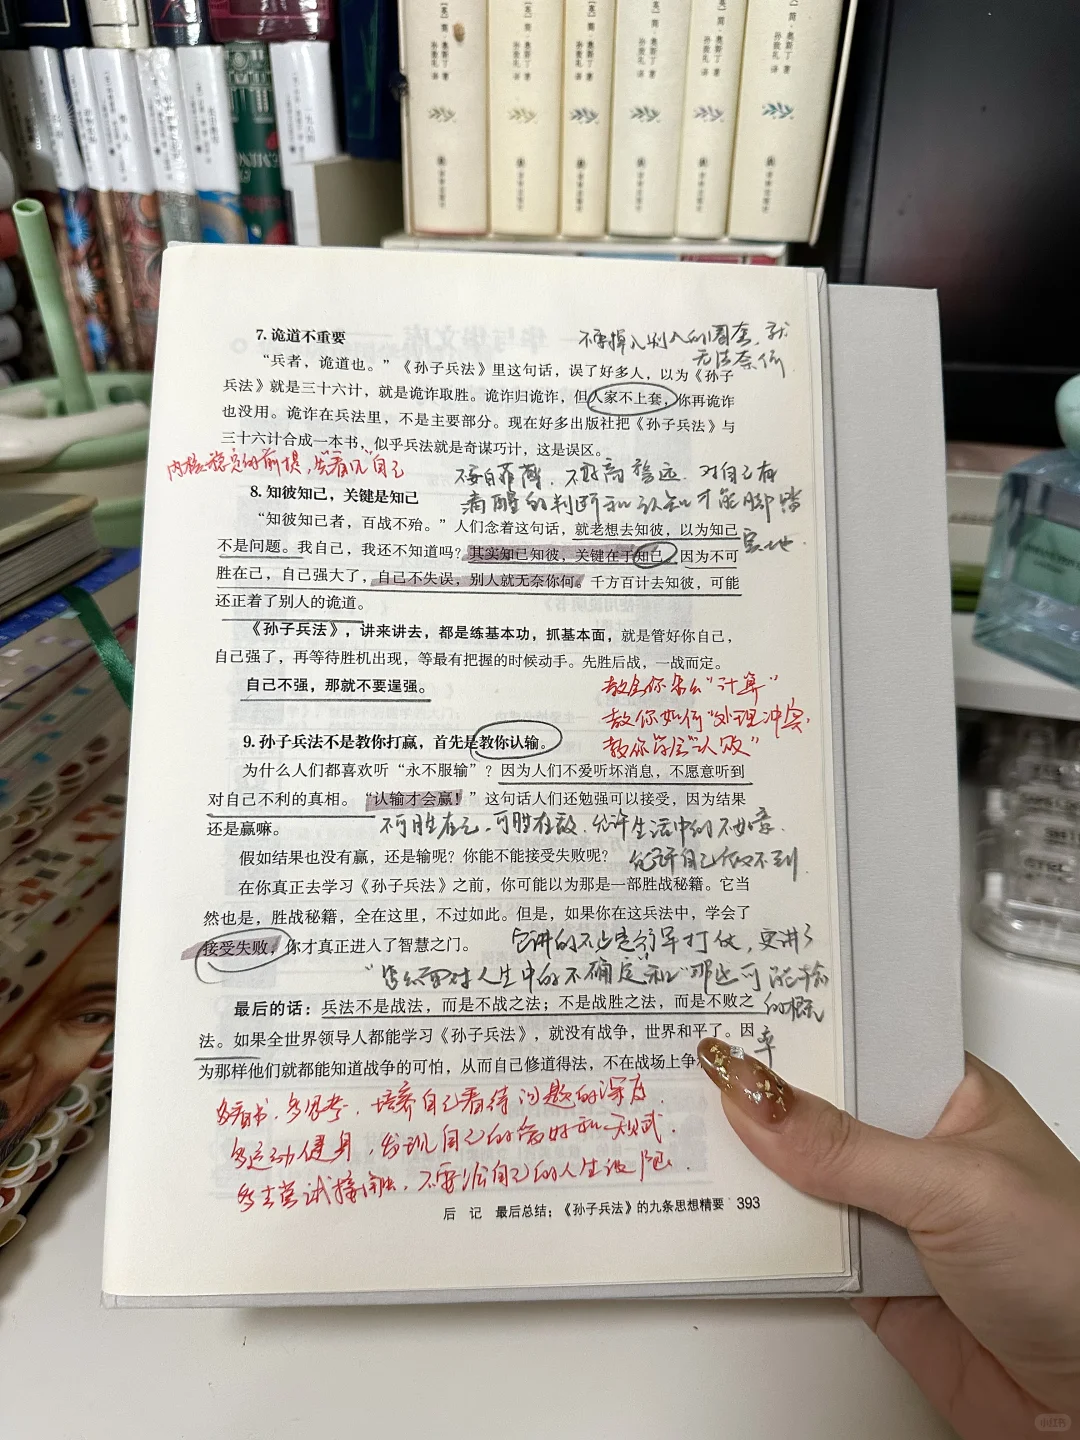 [英] 简·奥斯丁 著
孙致礼 译
[英] 简·奥斯丁 著
孙致礼 译
[英] 简·奥斯丁 著
孙致礼 译
[英] 简·奥斯丁 著
孙致礼 译
简·奥斯丁 著
孙致礼 译
简·奥斯丁 著
孙致礼 译
7. 诡道不重要
不要掉入别人的圈套,就
无法奈何
“兵者,诡道也。”《孙子兵法》里这句话,误了好多人,以为《孙子
兵法》就是三十六计,就是诡诈取胜。诡诈归诡诈,但人家不上套,你再诡诈
也没用。诡诈在兵法里,不是主要部分。现在好多出版社把《孙子兵法》与
三十六计合成一本书,似乎兵法就是奇谋巧计,这是误区。
内核稳定的前提,是“看见”自己
不妄自菲薄,不好高骛远,对自己有
清醒的判断和认知才能脚踏
实地.
8. 知彼知己,关键是知己
“知彼知己者,百战不殆。”人们念着这句话,就老想去知彼,以为知己
不是问题。我自己,我还不知道吗?其实知己知彼,关键在于知己。因为不可
胜在己,自己强大了,自己不失误,别人就无奈你何。千方百计去知彼,可能
还正着了别人的诡道。
《孙子兵法》,讲来讲去,都是练基本功,抓基本面,就是管好你自己,
自己强了,再等待胜机出现,等最有把握的时候动手。先胜后战,一战而定。
自己不强,那就不要逞强。
教会你怎么“计算”
教你如何“处理冲突”
教你学会“认败”
9. 孙子兵法不是教你打赢,首先是教你认输。
为什么人们都喜欢听“永不服输”?因为人们不爱听坏消息,不愿意听到
对自己不利的真相。“认输才会赢!”这句话人们还勉强可以接受,因为结果
还是赢嘛。
不可胜在己,可胜在敌,允许生活中的不如意.
允许自己做不到.
假如结果也没有赢,还是输呢?你能不能接受失败呢?
在你真正去学习《孙子兵法》之前,你可能以为那是一部胜战秘籍。它当
然也是,胜战秘籍,全在这里,不过如此。但是,如果你在这兵法中,学会了
接受失败,你才真正进入了智慧之门。
它讲的不止是行军打仗,更讲了
“当你面对人生中的不确定”和“那些可能输
的概率
最后的话:兵法不是战法,而是不战之法;不是战胜之法,而是不败之
法。如果全世界领导人都能学习《孙子兵法》,就没有战争,世界和平了。因
为那样他们就都能知道战争的可怕,从而自己修道得法,不在战场上争
多看书,多思考,培养自己看待问题的深度.
多运动健身,发现自己的爱好和天赋.
多去尝试接触,不要给自己的人生设限.
后 记 最后总结:《孙子兵法》的九条思想精要 393
小红书